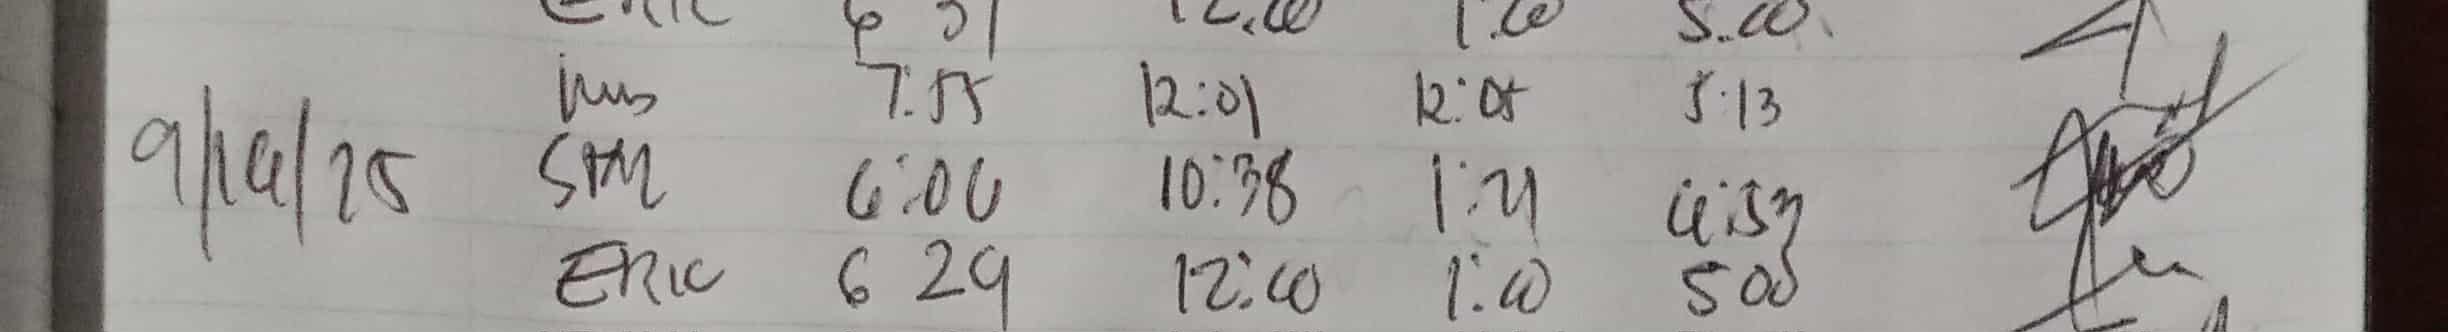 ERIC 6 31 12.00 1.00 5.00.
7:55 12:01 12:05 5:13
9/14/25 SAM 6:06 10:38 1:21 4:57
ERIC 6 29 12:00 1:00 500